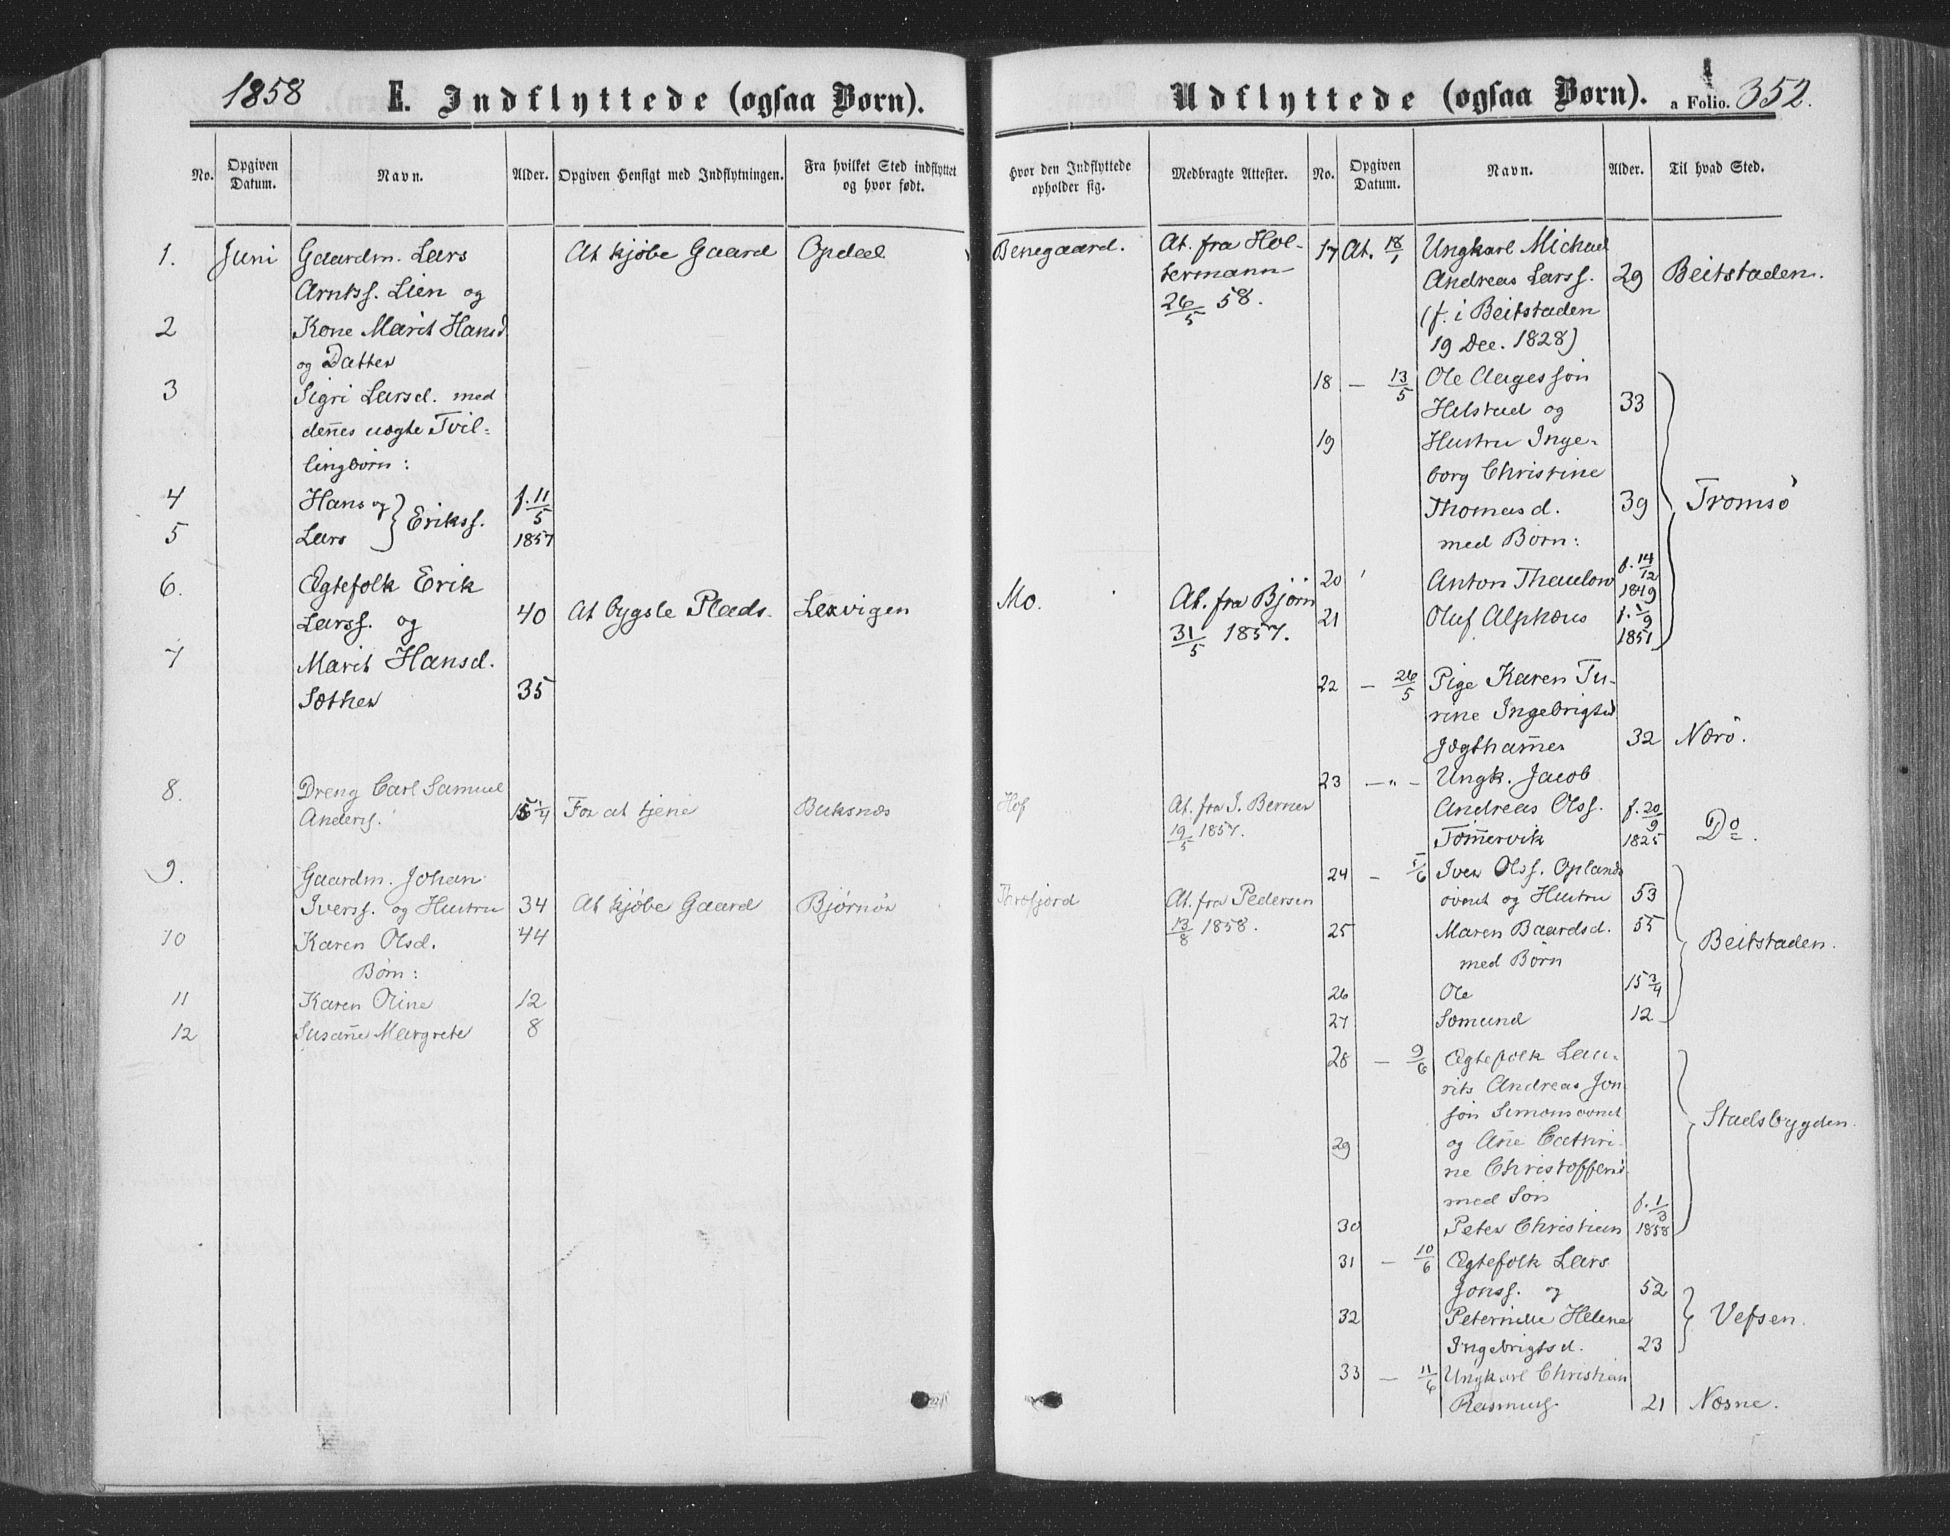 1858 E. Indflyttede (ogsaa Børn).
No. Opgiven Datum. Navn. Alder. Opgiven Hensigt med Indflytningen. Fra hvilket Sted indflyttet og hvor født. Hvor den Indflyttede opholder sig. Medbragte Attester.
1. Juni Gaardm. Lars At kjøbe Gaard Opdal Benegaard. At. fra Hol-
Arntsf. Lien og termann
2 Kone Marit Hansd 26/5 58.
og Datter
3 Sigri Larsd. med
denes uægte Tvil-
lingbørn:
4 Hans og } Eriksf. f. 11/5
5 Lars 1857
6. Ægtefolk Erik
Larsf. og 40 At bygsle Plads. Lexvigen Mo. At. fra Bjørn
31/5 1857.
7 Marit Hansd.
Sæther 35
8. Dreng Carl Samuel
Andersf. 15 1/4 For at tjene Buksnæs Hof At. fra J. Berner
19/5 1857.
9. Gaardm. Johan
Iversf. og Hustru 34 At kjøbe Gaard Bjørnør At. fra Pedersen
10 Karen Olsd. 44 13/8 1858.
Børn:
11 Karen Oline 12
12 Susane Margrete 8
Udflyttede (ogsaa Børn). a Folio. 352.
No. Opgiven Datum. Navn. Alder. Til hvad Sted.
17 At. 18/1 Ungkarl Michael
Andreas Larsf. 29 Beitstaden.
(f. i Beitstaden
19 Dec. 1828)
18 — 13/5 Ole Aagessøn
Hilstad og 33
19 Hustru Inge-
borg Christine
Thomasd. 39 Tromsø
med Børn:
20 Anton Thaulow f. 14/12 1849
21 Oluf Alphæus f. 1/9 1851
22 — 26/5 Pige Karen Tu-
rine Ingebrigtsd
Jægthamer 32 Nærø.
23 — " — Ungk. Jacob
Andreas Olsf. f. 20/9
Tømervik 1825 Do.
24 — 5/6 Iver Olsf. Oplands
øvnet og Hustru 53
25 Maren Baardsd. 55 Beitstaden.
med Børn
26 Ole 15 3/4
27 Sæmund 12
28 — 9/6 Ægtefolk Lau-
rits Andreas Jon
søn Simonsovnet Stadsbygden.
29 og Ane Cathri-
ne Christoffersd
med Søn f. 1/3
30 Peter Christian 1858
31 — 10/6 Ægtefolk Lars
Jonsf. og 52
32 Peternille Helene Vefsen.
Ingebrigtsd. 23
33 — 11/6 Ungkarl Christian
Rasmusf. 21 Næsne.